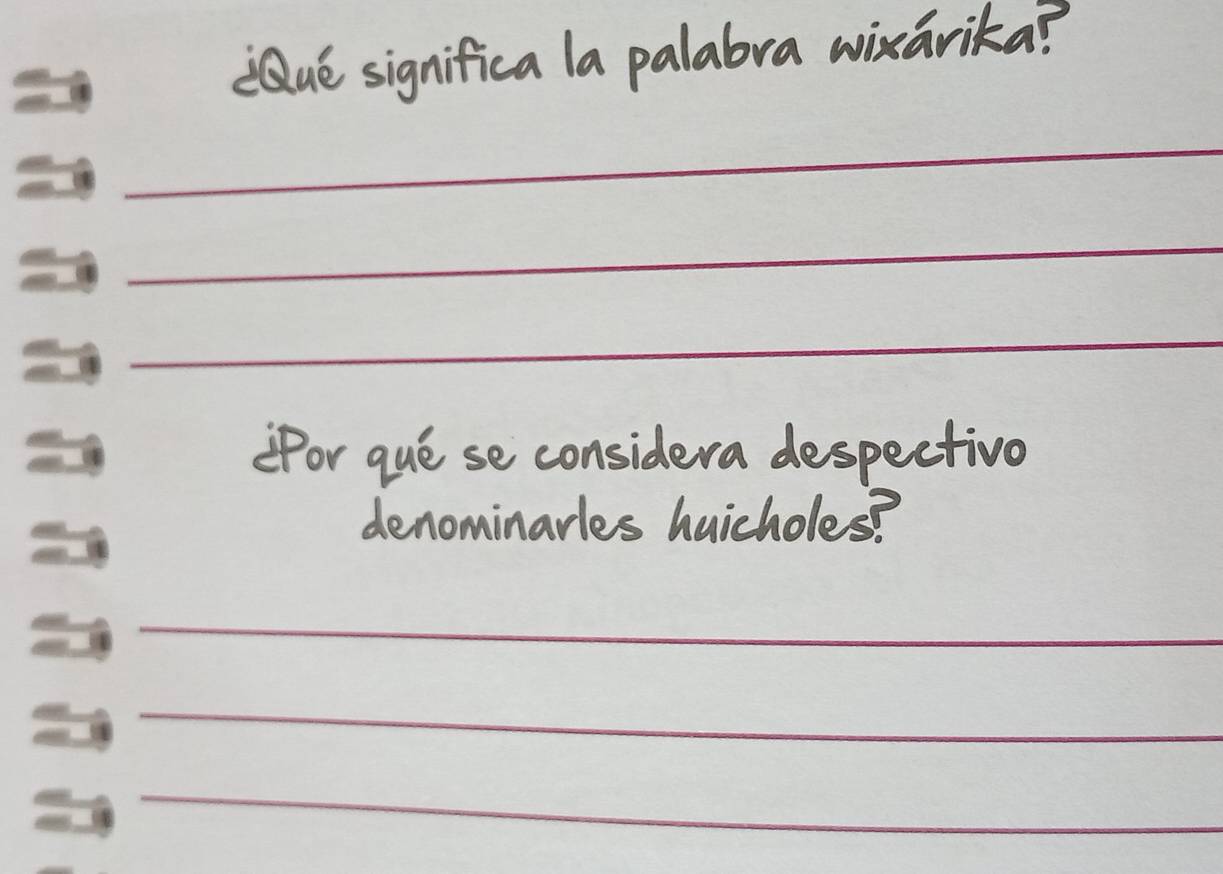 ¿Qué significa la palabra wixárika?
¿Por qué se considera despectivo
denominarles huicholes?